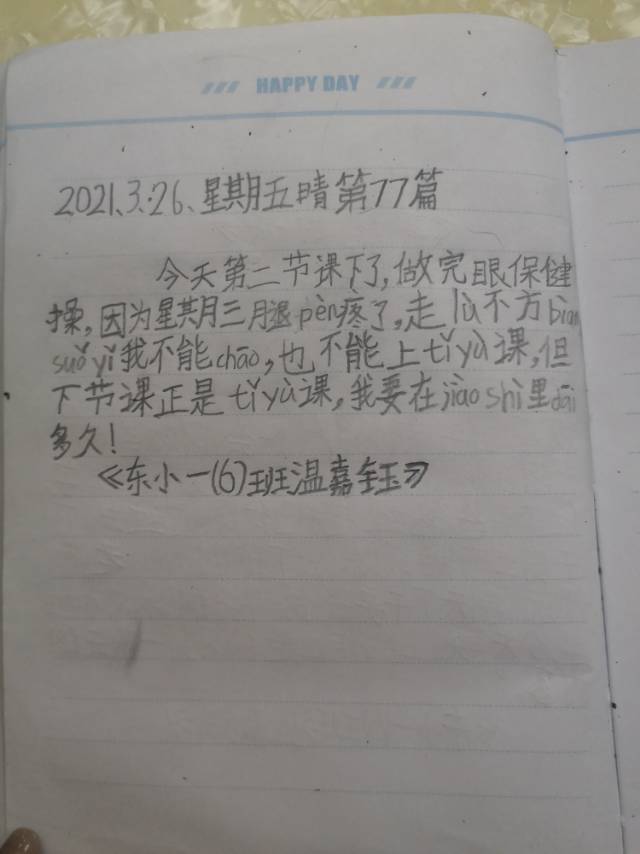 HAPPY DAY
2021.3.26、星期五晴第77篇
今天第二节课下了,做完眼保健
操,因为星期三腿pèn疼了,走lù不方biàn
suǒyǐ我不能chāo,也不能上tǐyù课,但
下节课正是tǐyù课,我要在jiàoshì里dāi
多久!
《东小一(6)班温嘉钰》